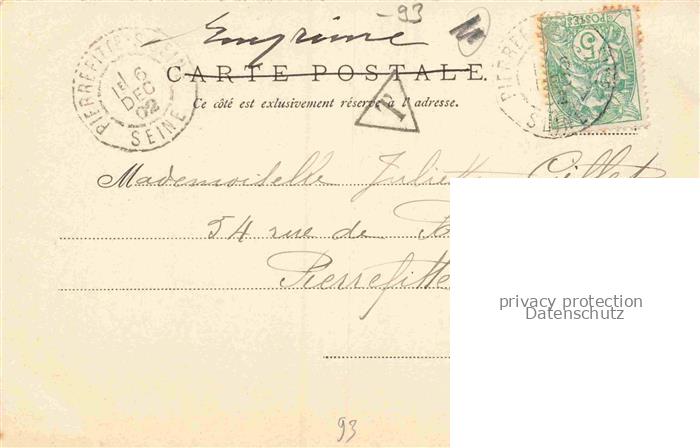 -93
Imprimé
CARTE POSTALE.
Ce côté est exclusivement réservé à l'adresse.
PIERREFITTE
16
DEC
02
SEINE
T
5
POSTES
PIERREFITTE
SEINE
Mademoiselle Juliette
54 rue de
Pierrefitte
privacy protection
Datenschutz
93